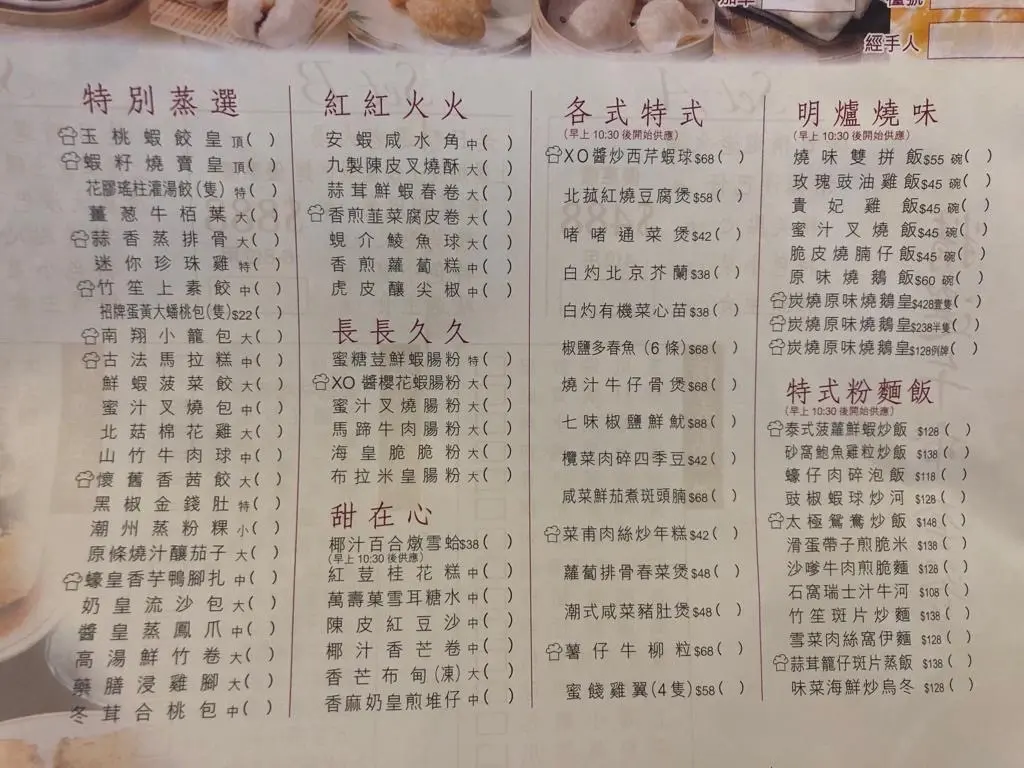 經手人
特別蒸選
玉桃蝦餃皇 頂( )
蝦籽燒賣皇 頂( )
花膠瑤柱灌湯餃(隻) 特( )
薑蔥牛栢葉 大( )
蒜香蒸排骨 大( )
迷你珍珠雞 特( )
竹笙上素餃 中( )
招牌蛋黃大蟠桃包(隻)$22( )
南翔小籠包 大( )
古法馬拉糕 中( )
鮮蝦菠菜餃 大( )
蜜汁叉燒包 中( )
北菇棉花雞 大( )
山竹牛肉球 中( )
懷舊香茜餃 大( )
黑椒金錢肚 特( )
潮州蒸粉粿 小( )
原條燒汁釀茄子 大( )
蠔皇香芋鴨腳扎 中( )
奶皇流沙包 大( )
醬皇蒸鳳爪 中( )
高湯鮮竹卷 大( )
藥膳浸雞腳 大( )
冬茸合桃包 中( )
紅紅火火
安蝦咸水角 中( )
九製陳皮叉燒酥 大( )
蒜茸鮮蝦春卷 大( )
香煎韮菜腐皮卷 大( )
蜆介鯪魚球 大( )
香煎蘿蔔糕 中( )
虎皮釀尖椒 中( )
長長久久
蜜糖荳鮮蝦腸粉 特( )
XO醬櫻花蝦腸粉 大( )
蜜汁叉燒腸粉 大( )
馬蹄牛肉腸粉 大( )
海皇脆脆粉 大( )
布拉米皇腸粉 大( )
甜在心
椰汁百合燉雪蛤$38( )
(早上 10:30 後供應)
紅荳桂花糕 中( )
萬壽菓雪耳糖水 中( )
陳皮紅豆沙 中( )
椰汁香芒卷 中( )
香芒布甸(凍) 大( )
香麻奶皇煎堆仔 中( )
各式特式
(早上 10:30 後開始供應)
XO醬炒西芹蝦球$68( )
北菰紅燒豆腐煲$58( )
啫啫通菜煲$42( )
白灼北京芥蘭$38( )
白灼有機菜心苗$38( )
椒鹽多春魚(6條)$68( )
燒汁牛仔骨煲$68( )
七味椒鹽鮮魷$88( )
欖菜肉碎四季豆$42( )
咸菜鮮茄煮斑頭腩$68( )
菜甫肉絲炒年糕$42( )
蘿蔔排骨春菜煲$48( )
潮式咸菜豬肚煲$48( )
薯仔牛柳粒$68( )
蜜餞雞翼(4隻)$58( )
明爐燒味
(早上 10:30 後開始供應)
燒味雙拼飯$55 碗( )
玫瑰豉油雞飯$45 碗( )
貴妃雞飯$45 碗( )
蜜汁叉燒飯$45 碗( )
脆皮燒腩仔飯$45 碗( )
原味燒鵝飯$60 碗( )
炭燒原味燒鵝皇$428壹隻( )
炭燒原味燒鵝皇$238半隻( )
炭燒原味燒鵝皇$128例牌( )
特式粉麵飯
(早上 10:30 後開始供應)
泰式菠蘿鮮蝦炒飯 $128( )
砂窩鮑魚雞粒炒飯 $138( )
蠔仔肉碎泡飯 $118( )
豉椒蝦球炒河 $128( )
太極鴛鴦炒飯 $148( )
滑蛋帶子煎脆米 $138( )
沙嗲牛肉煎脆麵 $128( )
石窩瑞士汁牛河 $108( )
竹笙斑片炒麵 $138( )
雪菜肉絲窩伊麵 $128( )
蒜茸籠仔斑片蒸飯 $138( )
味菜海鮮炒烏冬 $128( )